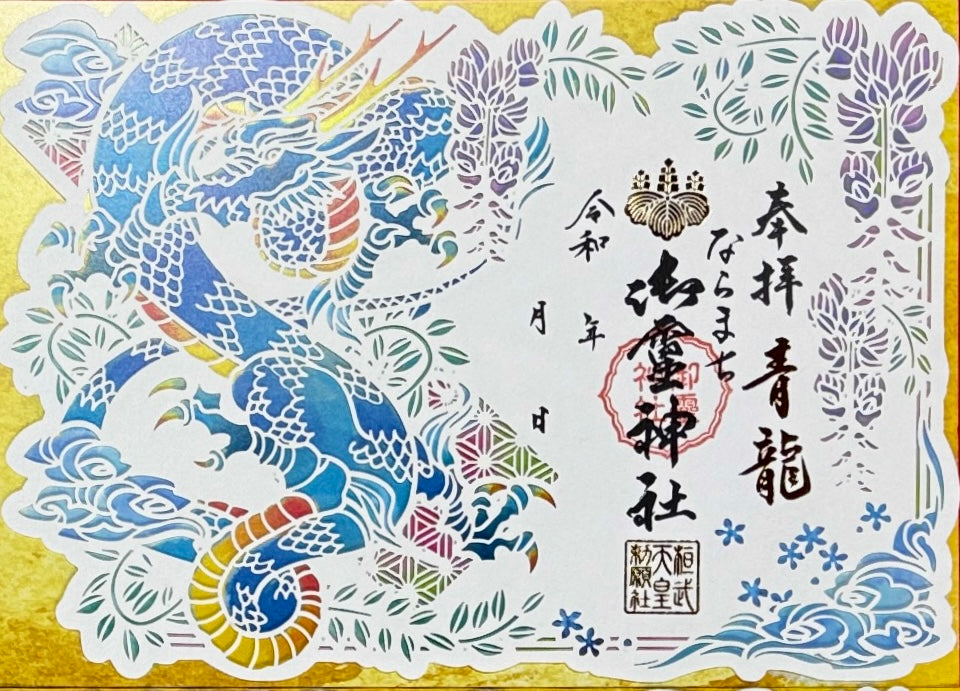 奉拝 青龍
ならまち
御霊神社
御靈
神社
桓武
天皇
勅願社
令和 年
月 日